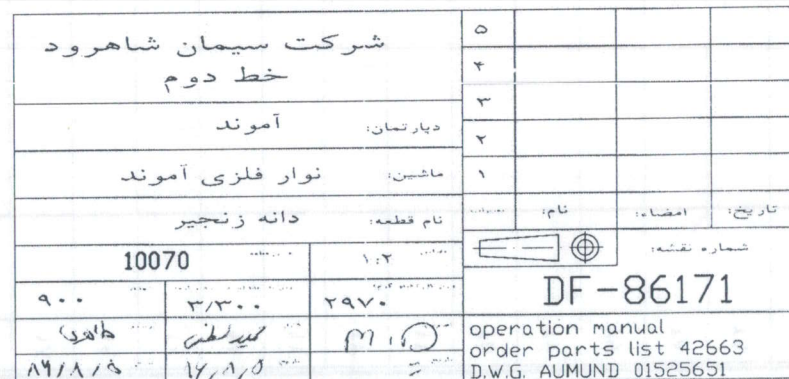 شرکت سیمان شاهرود
خط دوم
دپارتمان: آموند
ماشین: نوار فلزی آموند
نام قطعه: دانه زنجیر
۱:۲
10070
۲۹۷۰
۳/۳۰۰
۹۰۰
۵
۴
۳
۲
۱
نام:
امضاء:
تاریخ:
شماره نقشه:
DF-86171
operation manual
order parts list 42663
D.W.G. AUMUND 01525651